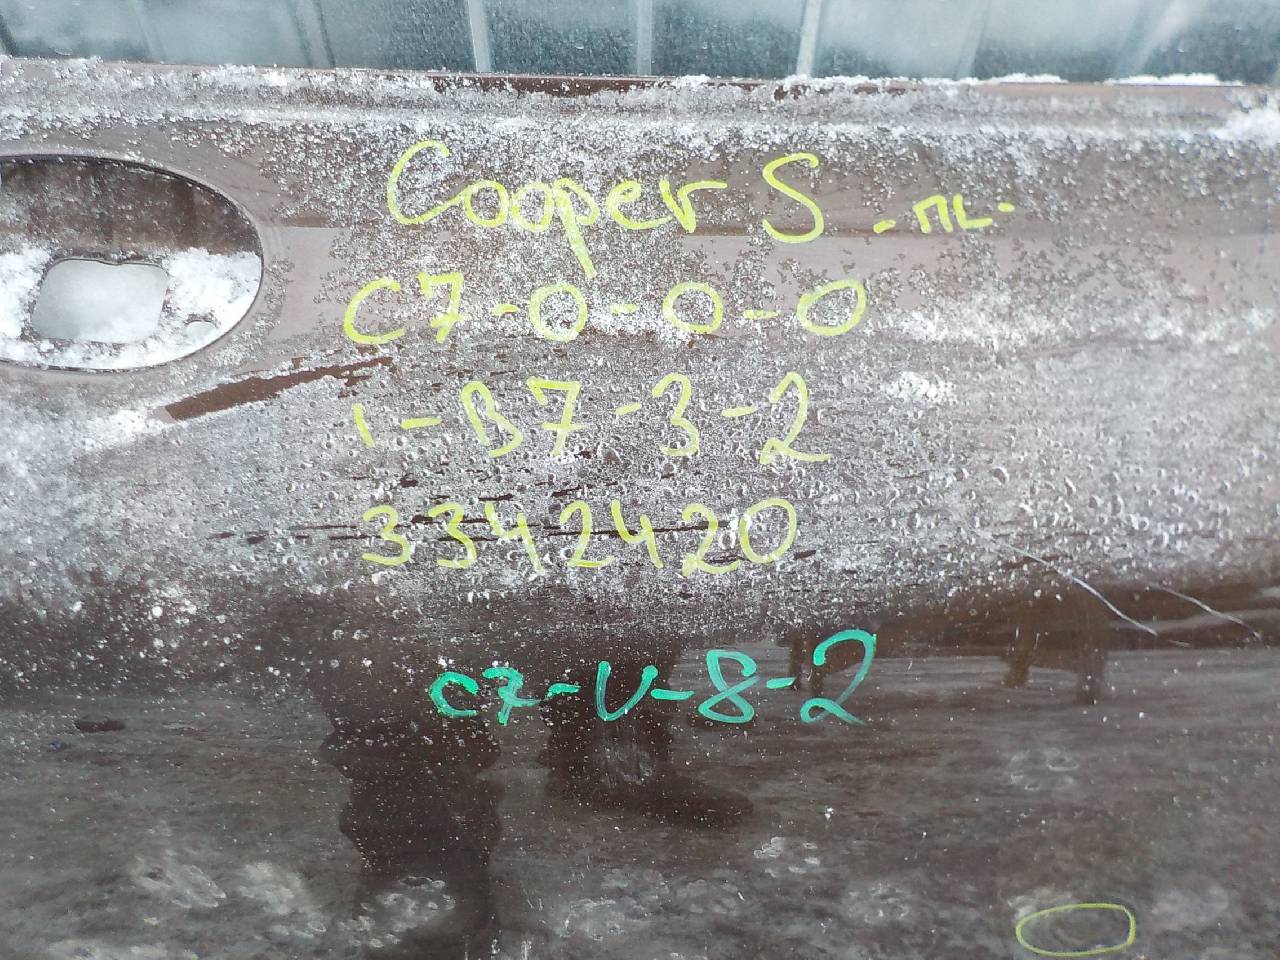 Cooper S - ПL-
C7-0-0-0
1-B7-3-2
3342420
C7-U-8-2